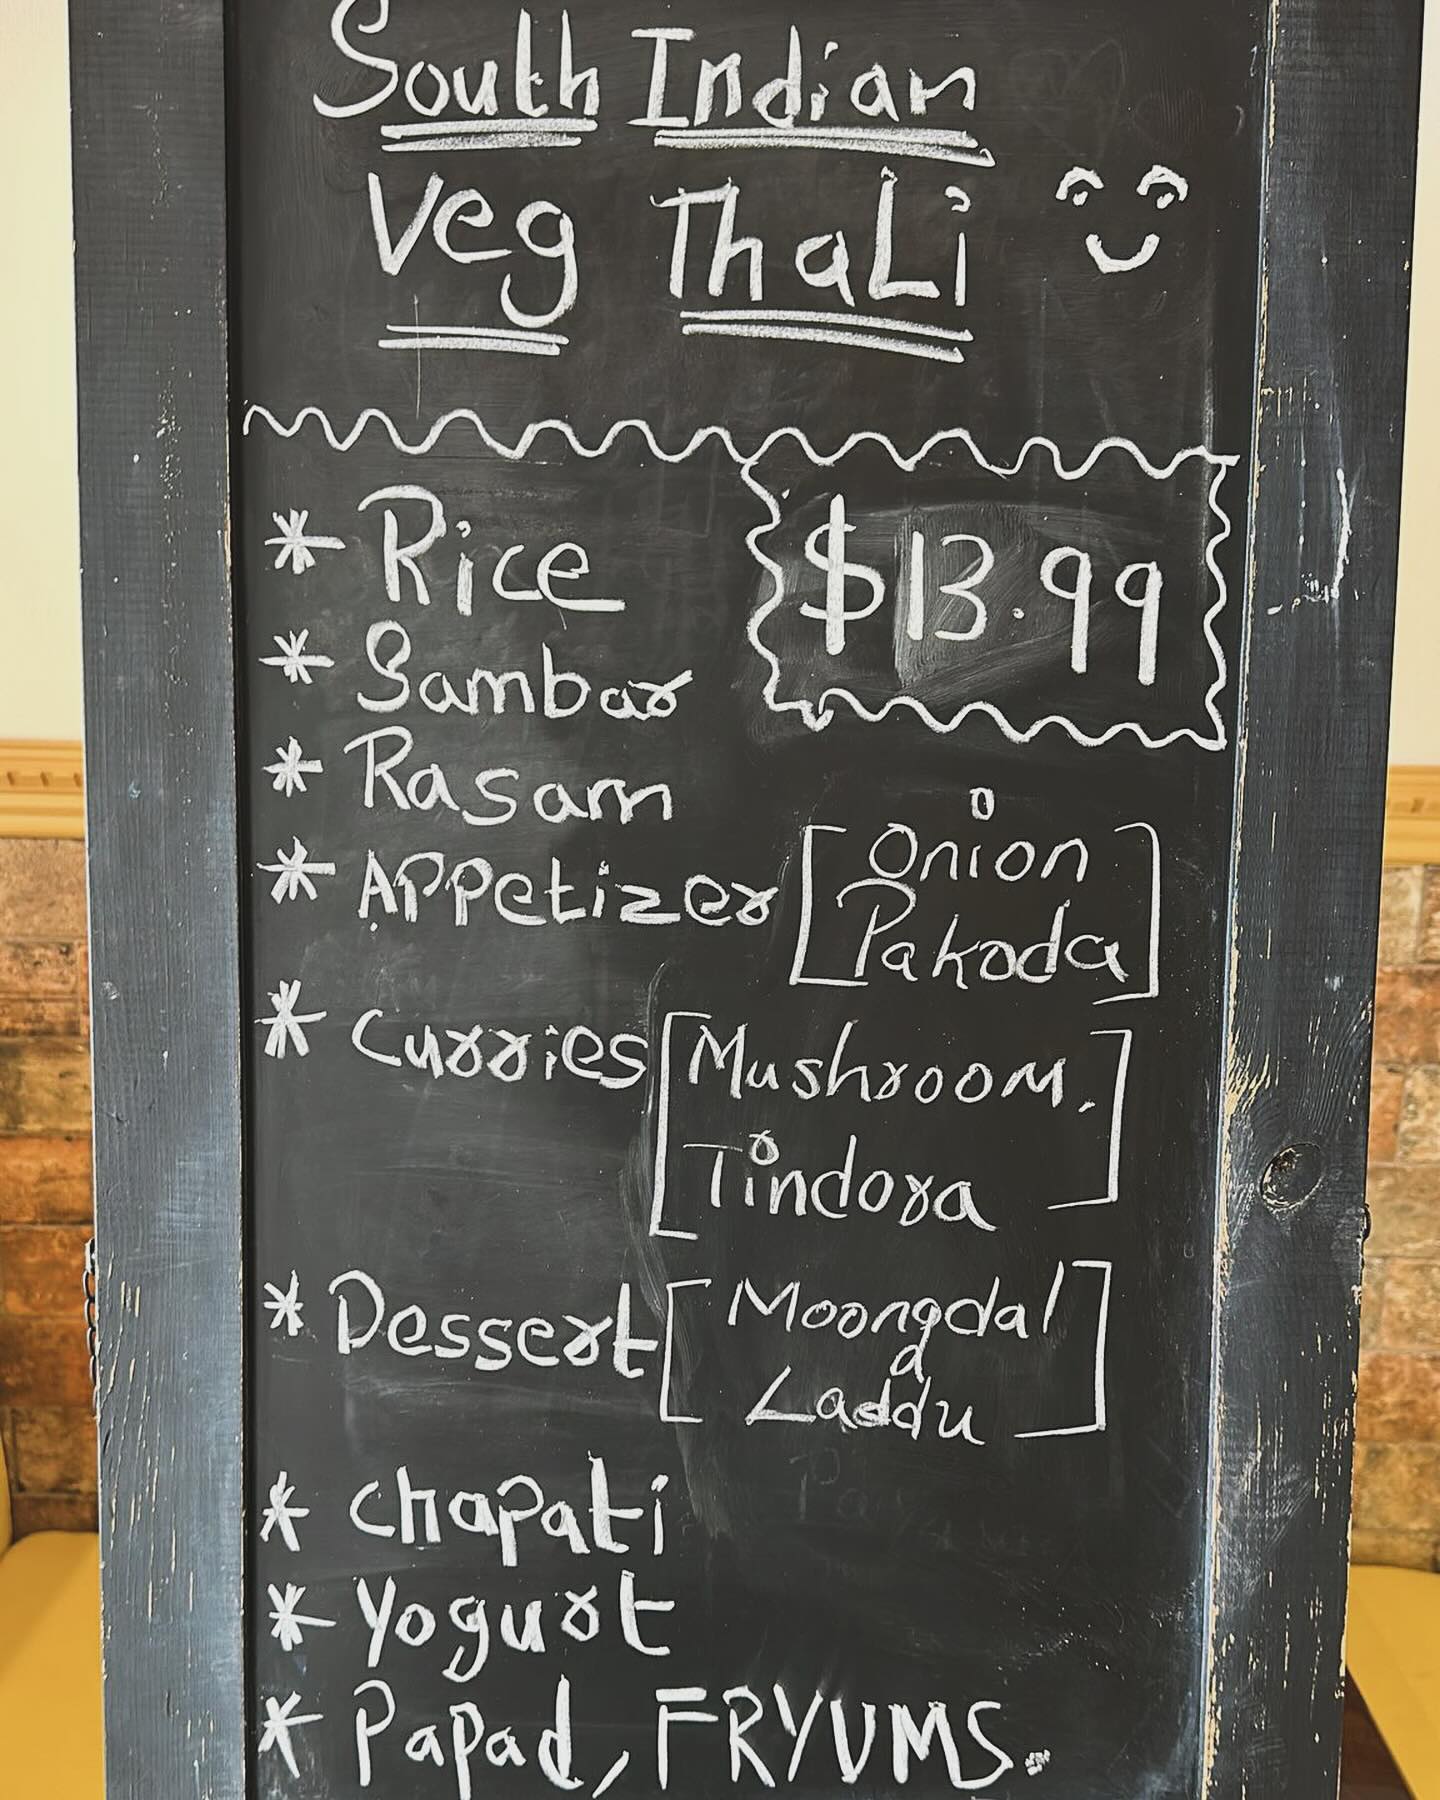 South Indian
Veg ThaLi
* Rice
$13.99
* Sambar
* Rasam
* Appetizer [Onion
Pakoda]
* Curries [Mushroom,
Tindora]
* Dessert [Moongdal
Laddu]
* Chapati
* Yogurt
* Papad, FRYUMS.